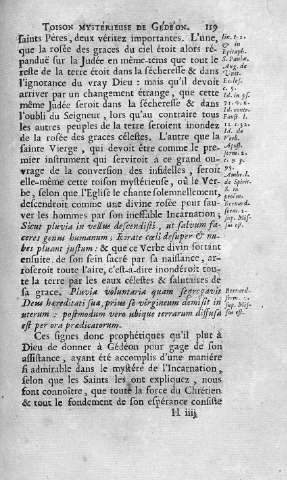 TOISON MYSTÉRIEUSE DE GÉDÉON. 119
saints Péres, deux véritez importantes. L'une,
que la rosée des graces du ciel étoit alors ré-
panduë sur la Judée en même-tems que tout le
reste de la terre étoit dans la sécheresse & dans
l'ignorance du vray Dieu : mais qu'il devoit
arriver par un changement étrange, que cette
même Judée seroit dans la sécheresse & dans
l'oubli du Seigneur, lors qu'au contraire tous
les autres peuples de la terre seroient inondez
de la rosée des graces célestes. L'autre que la
sainte Vierge, qui devoit être comme le pre-
mier instrument qui serviroit à ce grand ou-
vrage de la conversion des infidelles, seroit
elle-même cette toison mystérieuse, où le Ver-
be, selon que l'Eglise le chante solennellement,
descendroit comme une divine rosée pour sau-
ver les hommes par son ineffable Incarnation;
Sicut pluvia in vellus descendisti, ut salvum fa-
ceres genus humanum : Rorate cœli desuper & nu-
bes pluant justum : & que ce Verbe divin sortant
ensuite de son sein sacré par sa naissance, ar-
roseroit toute l'aire, c'est-à-dire inonderoit tou-
te la terre par les eaux célestes & salutaires de
sa grace. Pluviam voluntariam quam segregavit
Deus hereditati suæ, priùs se virgineum demisit in
uterum : postmodum verò ubique terrarum diffusa
est per ora prædicatorum.
Ces signes donc prophétiques qu'il plut à
Dieu de donner à Gédéon pour gage de son
assistance, ayant été accomplis d'une maniére
si admirable dans le mystére de l'Incarnation,
selon que les Saints les ont expliquez, nous
font connoître, que toute la force du Chrétien
& tout le fondement de son espérance consiste
H iiij
in
Epitaph.
S. Paulæ.
Aug. de
Unit.
Eccles.
c. 5.
Id. in ps.
Id. cont.
Faust. l.
Id. de
Verb.
Apost.
Ambr. l.
de Spirit.
S. in
Bernard.
serm. 2.
sup. Miss-
us est.
Bernard.
sup. Miss-
us est.